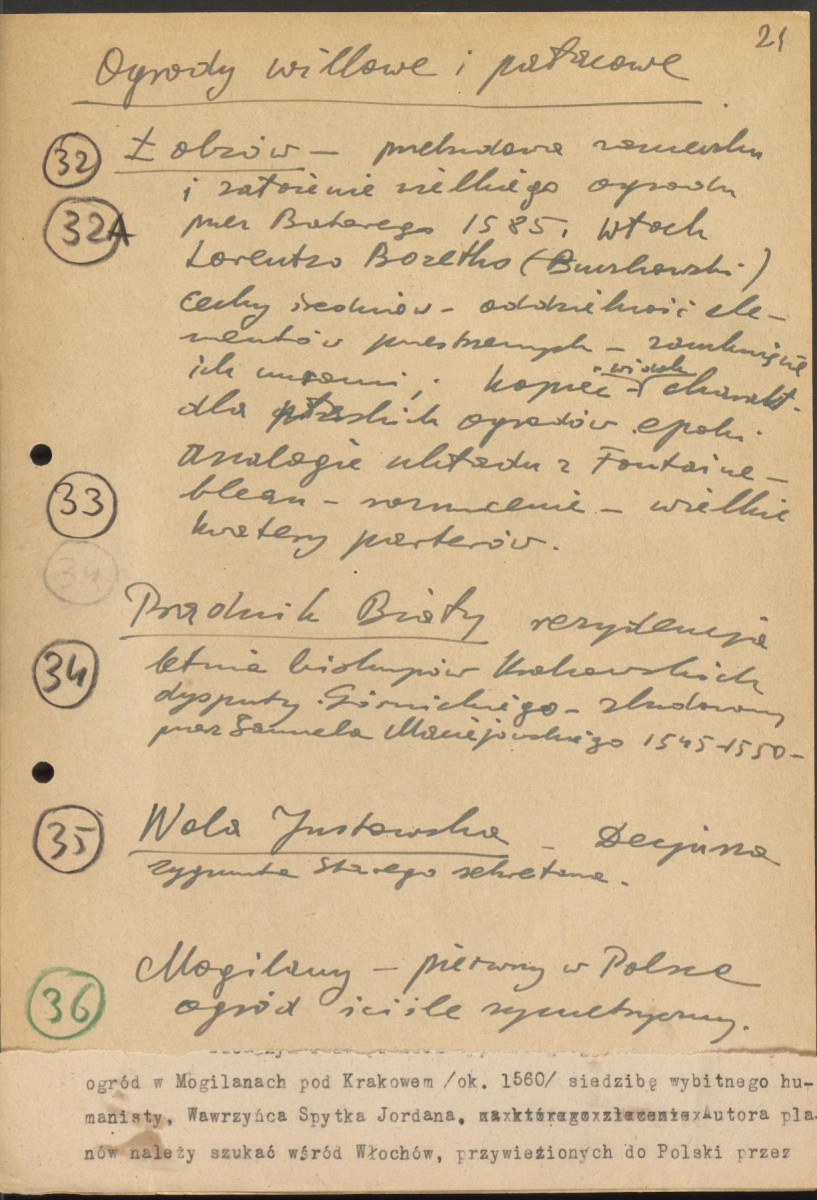 21
Ogrody willowe i pałacowe
32 Łobzów — przebudowa zameczku
i założenie wielkiego ogrodu
32A przez Batorego 1585. Włoch
Lorentzo Bozetho (Buszkowski)
cechy średniow - oddzielność ele-
mentów przestrzennych - zamknięcie
ich murami; kopiec - widok charakt.
dla ogrodów epoki.
Analogie układu z Fontaine-
33 bleau - rozrzucenie - wielkie
kwatery parterów.
34
Prądnik Biały rezydencja
34 letnia biskupów krakowskich
dysputy Górnickiego - zbudowany
przez Samuela Maciejowskiego 1545-1550 -
35 Wola Justowska - Decjusza
Zygmunta Starego sekretarza.
Mogilany - pierwszy w Polsce
36 ogród ściśle symetryczny.
ogród w Mogilanach pod Krakowem /ok. 1560/ siedzibę wybitnego hu-
manisty, Wawrzyńca Spytka Jordana. Autora pla-
nów należy szukać wśród Włochów, przywieżionych do Polski przez